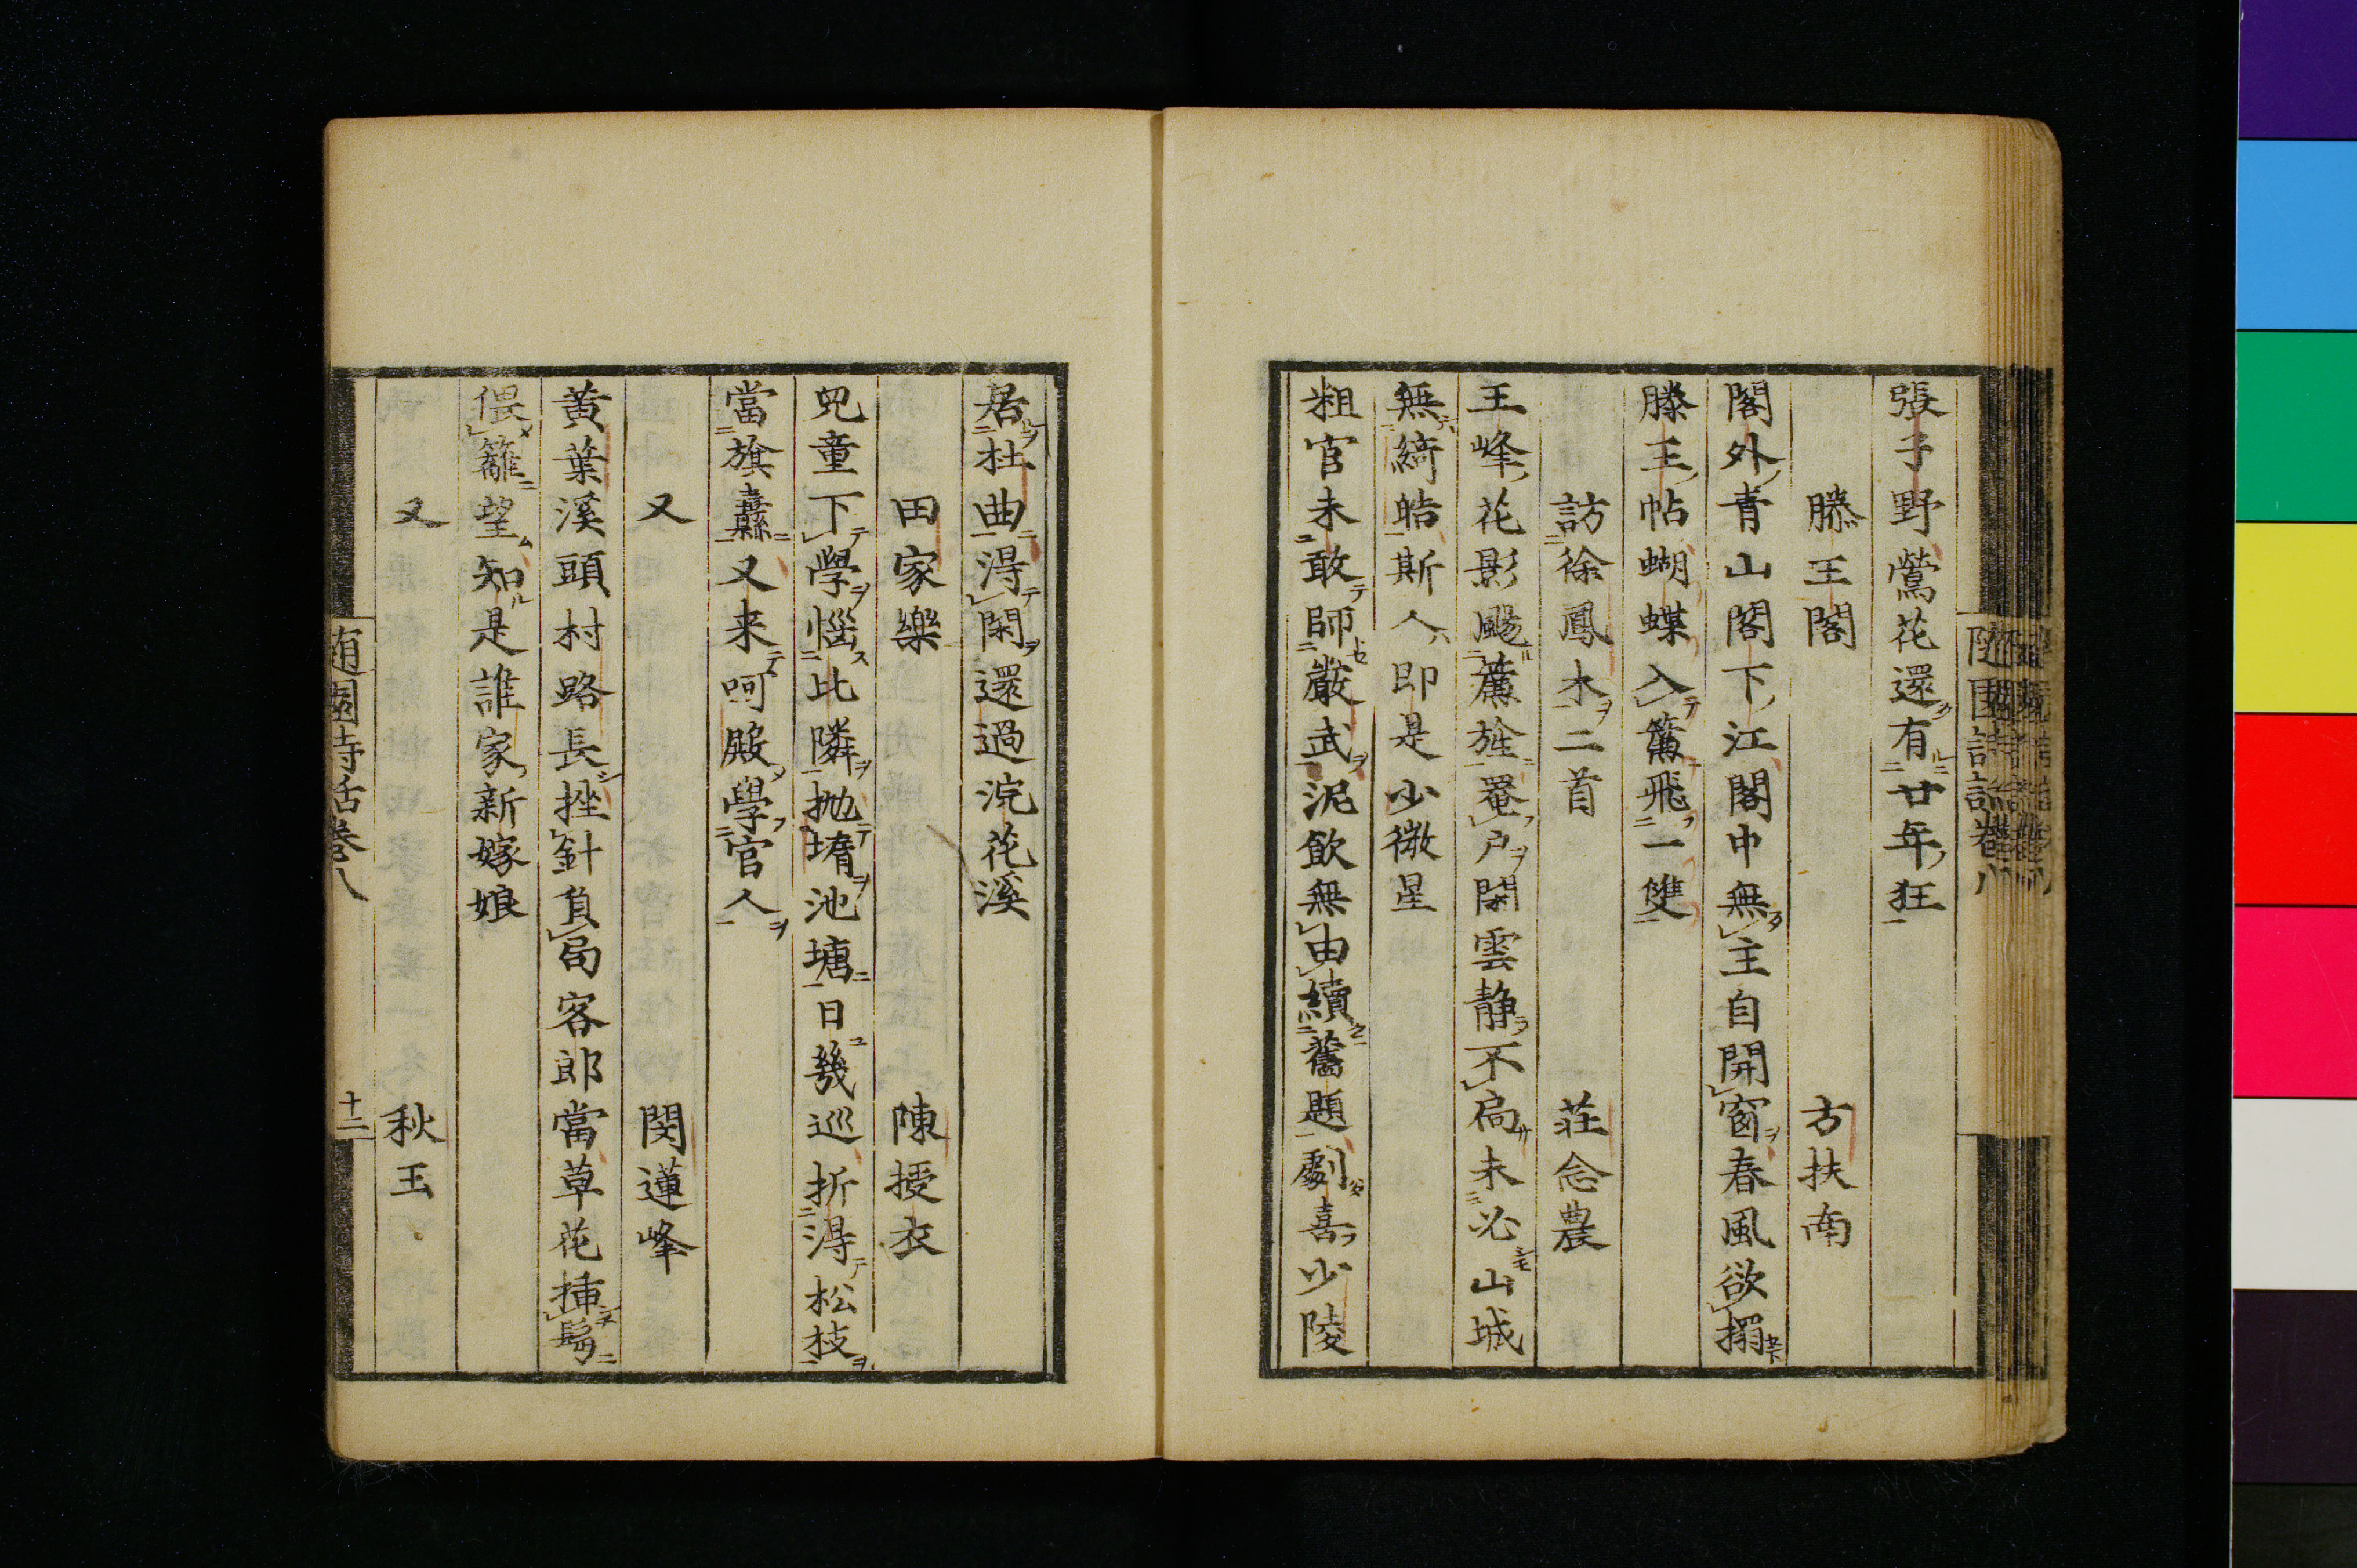 張子野鶯花還有廿年狂
滕王閣 方扶南
閣外青山閣下江閣中無主自開窗春風欲搨
滕王帖蝴蝶入簾飛一雙
訪徐鳳木二首 莊念農
王峰花影颺簾旌罨户閑雲静不扃未必山城
無綺皓斯人即是少微星
粗官未敢師嚴武泥飲無由續舊題劇喜少陵
居杜曲得閑還過浣花溪
田家樂 陳授衣
兒童下學惱比隣抛堶池塘日幾巡折得松枝
當旗纛又来呵殿學官人
又 閔蓮峰
黄葉溪頭村路長挫針負局客郎當草花插鬓
偎籬望知是誰家新嫁娘
又 秋玉
随園詩話卷八
十二